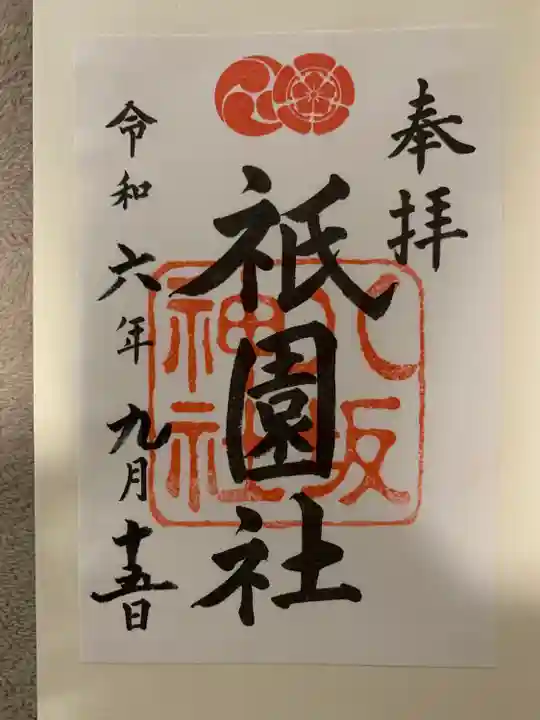 奉拝
祇園社
八坂
神社
令和六年九月十五日